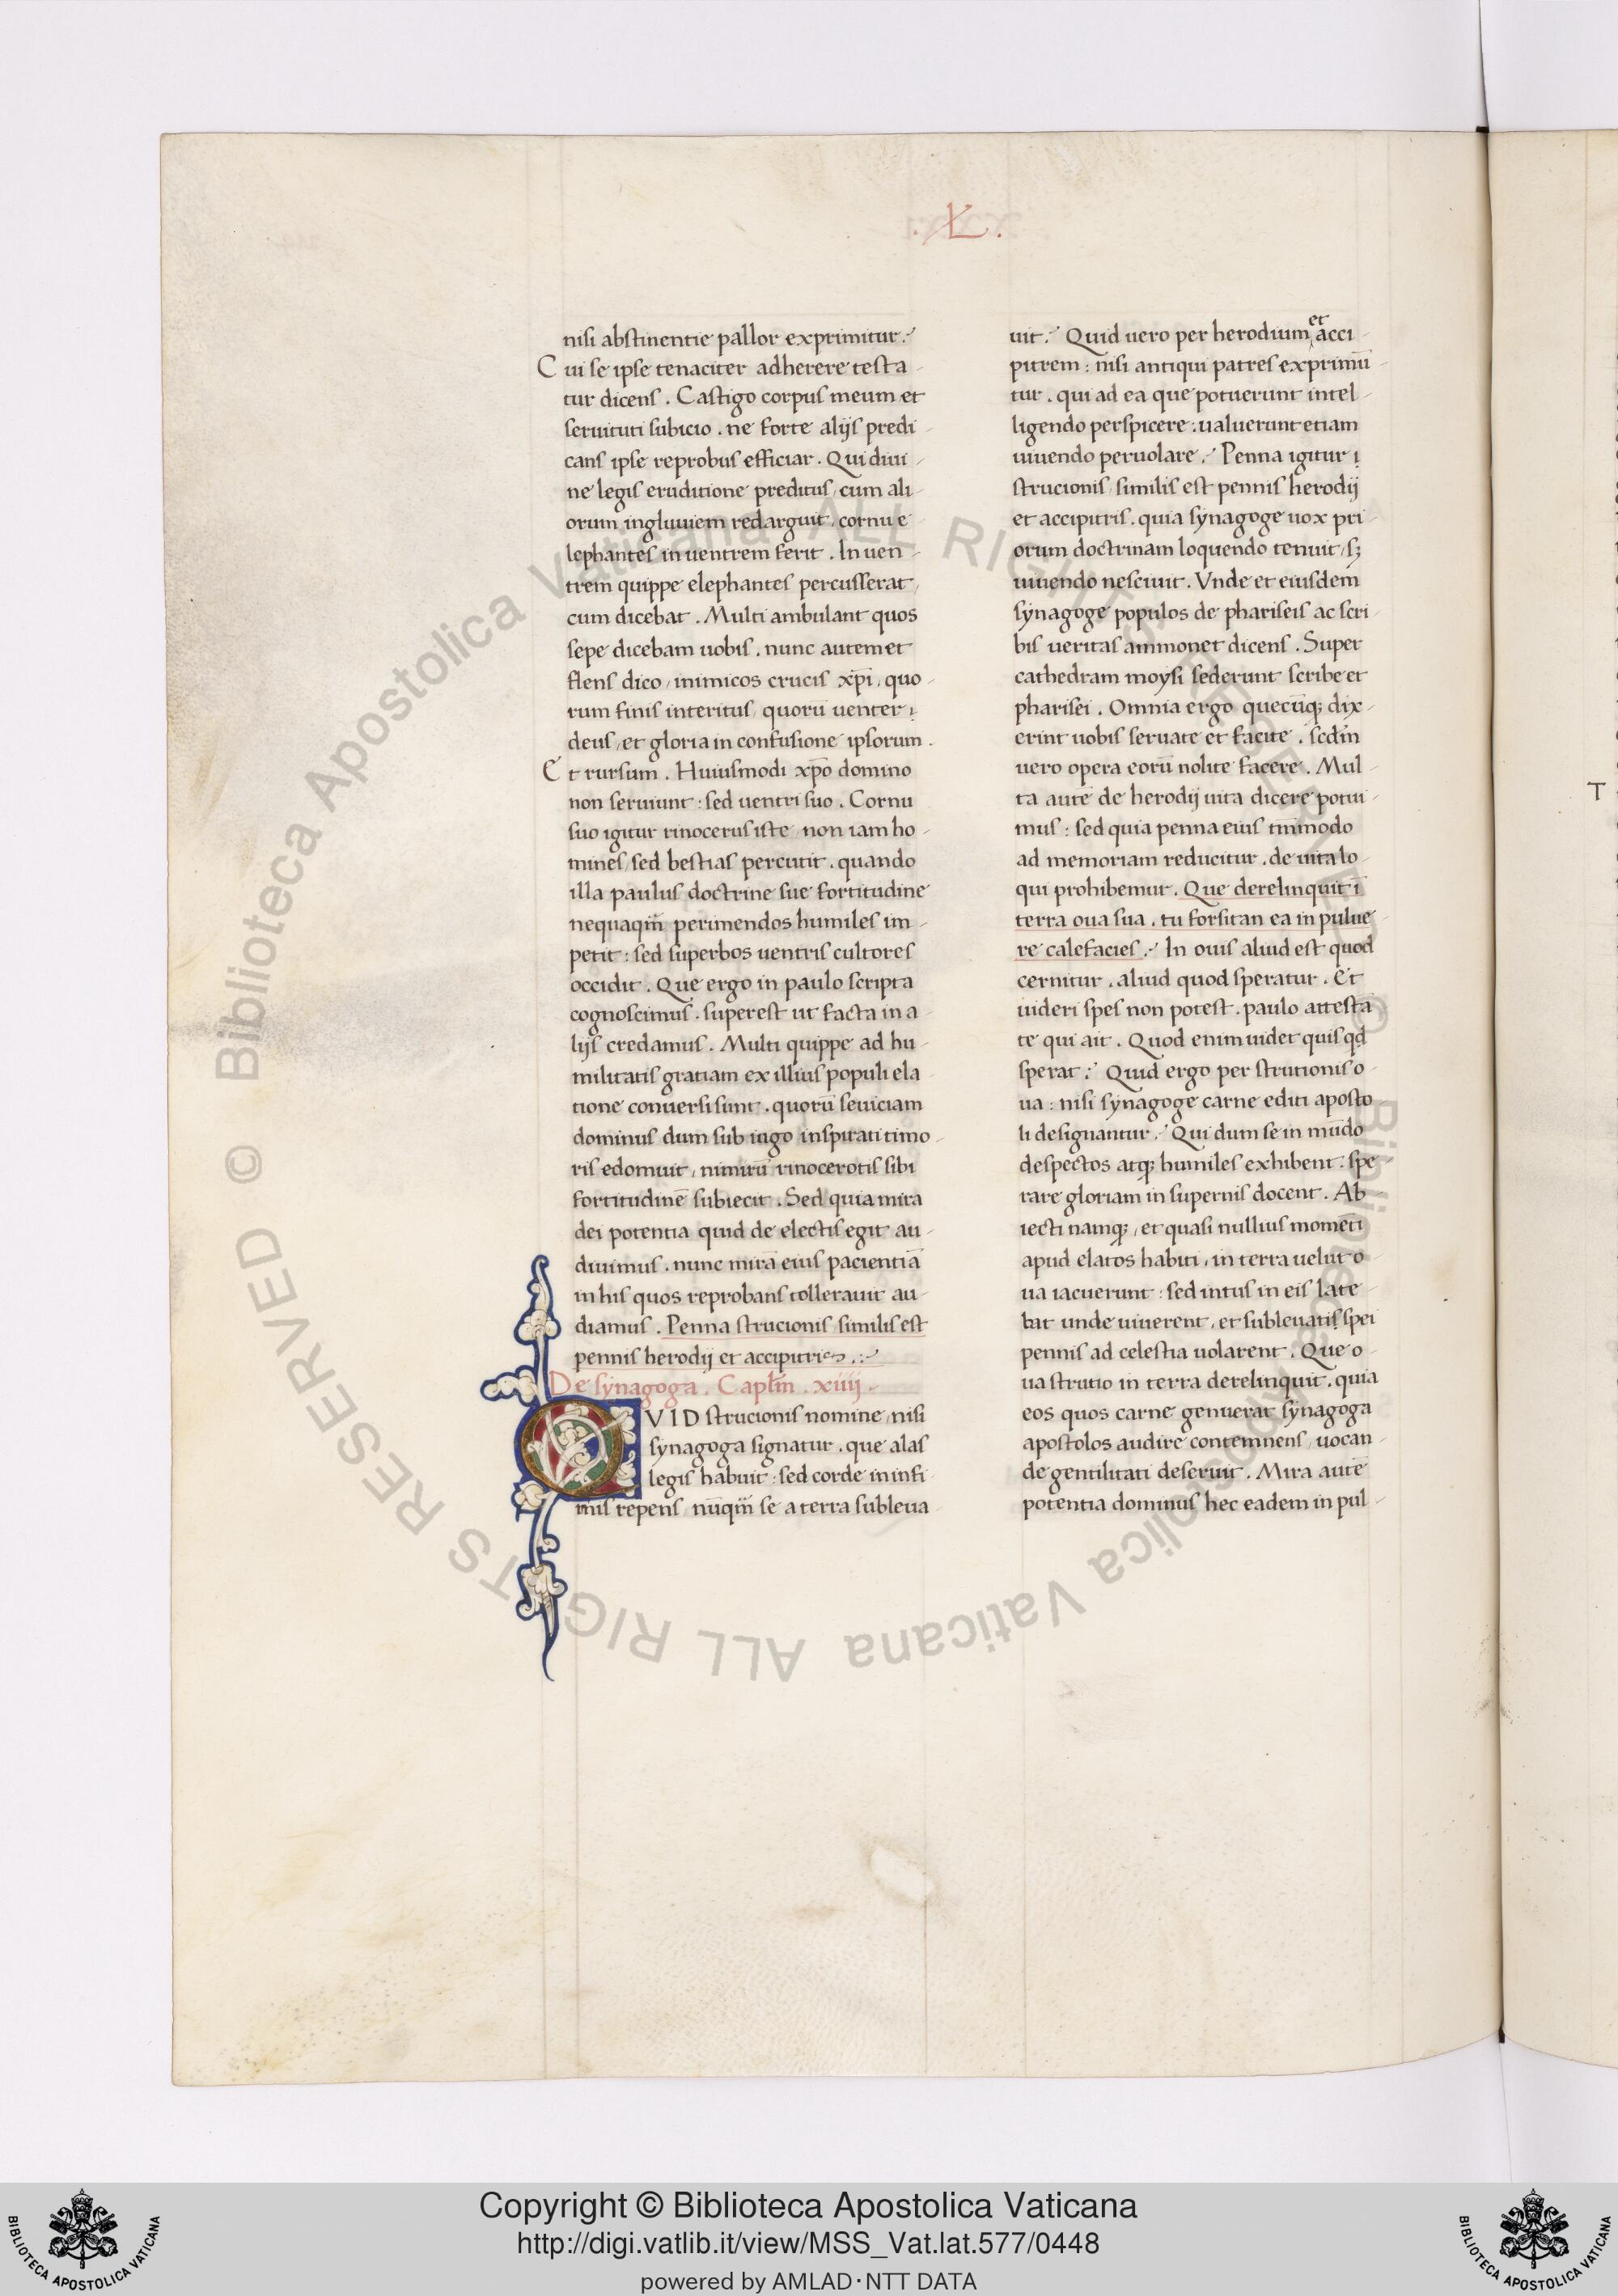 .XL.
nisi abstinentie pallor exprimitur.
Cui se ipse tenaciter adherere testa-
tur dicens. Castigo corpus meum et
seruituti subicio. ne forte alijs predi-
cans ipse reprobus efficiar. Qui diui-
ne legis eruditione preditus, cum ali-
orum ingluuiem redarguit, cornu e-
lephantes in uentrem ferit. In uen-
trem quippe elephantes percusserat,
cum dicebat. Multi ambulant quos
sepe dicebam uobis. nunc autem et
flens dico, inimicos crucis xp̄i, quo-
rum finis interitus, quorū uenter
deus, et gloria in confusione ipsorum.
Et rursum. Huiusmodi xp̄o domino
non seruiunt: sed uentri suo. Cornu
suo igitur rinocerus iste, non iam ho-
mines, sed bestias percutit. quando
illa paulus doctrine sue fortitudine
nequaqm̄ perimendos humiles im-
petit: sed superbos uentris cultores
occidit. Que ergo in paulo scripta
cognoscimus. superest ut facta in a-
lijs credamus. Multi quippe ad hu-
militatis gratiam ex illius populi ela-
tione conuersi sunt. quorū seuiciam
dominus dum sub iugo inspirati timo-
ris edomuit, nimirū rinocerotis sibi
fortitudinē subiecit. Sed quia mira
dei potentia quid de electis egit au-
diuimus. nunc mirā eius pacientiā
in his quos reprobans tollerauit au-
diamus. Penna strucionis similis est
pennis herodij et accipitris.
De synagoga. Caplm̄. xiiij.
QVID strucionis nomine, nisi
synagoga signatur. que alas
legis habuit: sed corde in infi-
mis repens, nūqm̄ se a terra subleua-
uit. Quid uero per herodium et acci-
pitrem: nisi antiqui patres exprimū-
tur. qui ad ea que potuerunt intel-
ligendo perspicere. ualuerunt etiam
uiuendo peruolare. Penna igitur
strucionis, similis est pennis herodij
et accipitris. quia synagoge uox pri-
orum doctrinam loquendo tenuit, s;
uiuendo nesciuit. Vnde et eiusdem
synagoge populos de phariseis ac scri-
bis ueritas ammonet dicens. Super
cathedram moysi sederunt scribe et
pharisei. Omnia ergo quecūq; dix-
erint uobis seruate et facite. sedm̄
uero opera eorū nolite facere. Mul-
ta autē de herodij uita dicere potui-
mus: sed quia penna eius tm̄modo
ad memoriam reducitur. de uita lo-
qui prohibemur. Que derelinquit ī
terra oua sua. tu forsitan ea in pulue-
re calefacies. In ouis aliud est quod
cernitur. aliud quod speratur. Et
uideri spes non potest. paulo attestā-
te qui ait. Quod enim uidet quis qd
sperat. Quid ergo per strutionis o-
ua: nisi synagoge carne editi aposto-
li designantur. Qui dum se in mūdo
despectos atq; humiles exhibent. spe-
rare gloriam in supernis docent. Ab-
iecti namq;, et quasi nullius momēti
apud elatos habiti, in terra uelut o-
ua iacuerunt: sed intus in eis late-
bat unde uiuerent, et subleuatis spei
pennis ad celestia uolarent. Que o-
ua strutio in terra derelinquit. quia
eos quos carne genuerat synagoga
apostolos audire contemnens, uocan-
de gentilitati deseruit. Mira autē
potentia dominus hec eadem in pul-
T
© Biblioteca Apostolica Vaticana ALL RIGHTS RESERVED
© Biblioteca Apostolica Vaticana ALL RIGHTS RESERVED
Copyright © Biblioteca Apostolica Vaticana
http://digi.vatlib.it/view/MSS_Vat.lat.577/0448
powered by AMLAD·NTT DATA
BIBLIOTECA APOSTOLICA VATICANA
BIBLIOTECA APOSTOLICA VATICANA